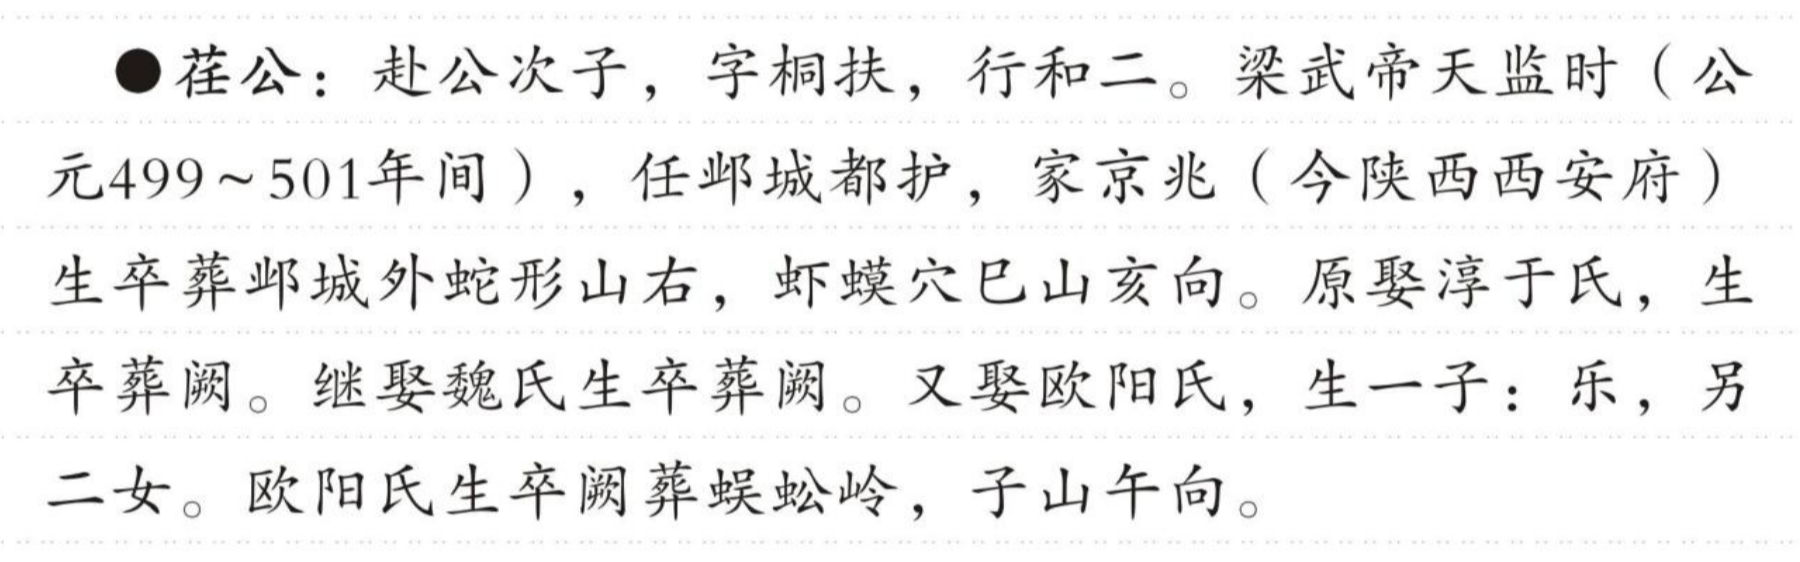 ●荏公：赴公次子，字桐扶，行和二。梁武帝天监时（公
元499～501年间），任邺城都护，家京兆（今陕西西安府）
生卒葬邺城外蛇形山右，虾蟆穴巳山亥向。原娶淳于氏，生
卒葬阙。继娶魏氏生卒葬阙。又娶欧阳氏，生一子：乐，另
二女。欧阳氏生卒阙葬蜈蚣岭，子山午向。